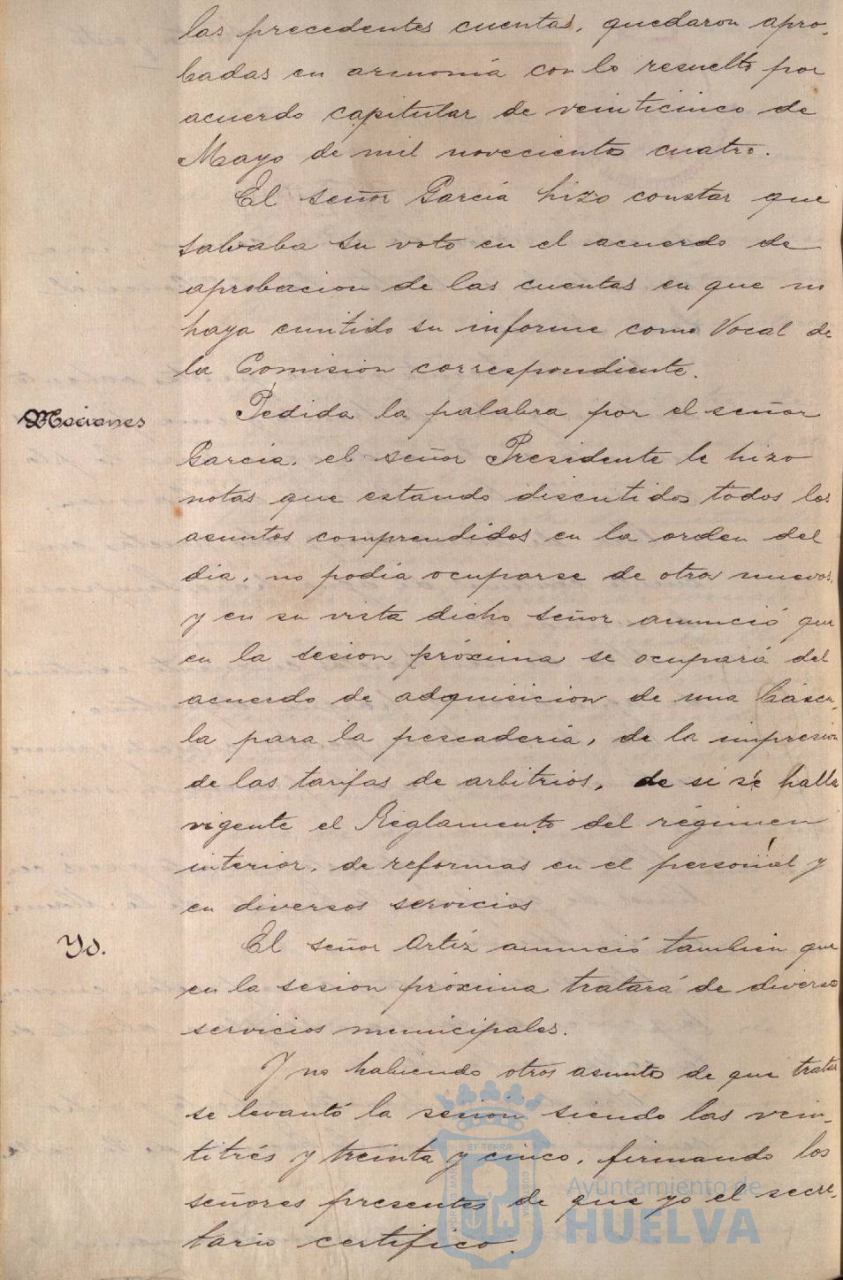 las precedentes cuentas, quedaron apro-
badas en armonía con lo resuelto por
acuerdo capitular de veinticinco de
Mayo de mil novecientos cuatro.
El señor García hizo constar que
salvaba su voto en el acuerdo de
aprobacion de las cuentas en que no
haya emitido su informe como Vocal de
la Comision correspondiente.
Mociones
Pedida la palabra por el señor
García, el señor Presidente le hizo
notar que estando discutidos todos los
asuntos comprendidos en la orden del
dia, no podia ocuparse de otros nuevos
y en su vista dicho señor anunció que
en la sesion próxima se ocupará del
acuerdo de adquisicion de una báscu-
la para la pescadería, de la impresion
de las tarifas de arbitrios, de si se halla
vigente el Reglamento del régimen
interior, de reformas en el personal y
en diversos servicios
Yd.
El señor Ortíz anunció tambien que
en la sesion próxima tratará de diversos
servicios municipales.
Y no habiendo otros asuntos de que tratar
se levantó la sesion siendo las vein-
titrés y treinta y cinco, firmando los
señores presentes de que yo el secre-
tario certifico.
Ayuntamiento de
HUELVA